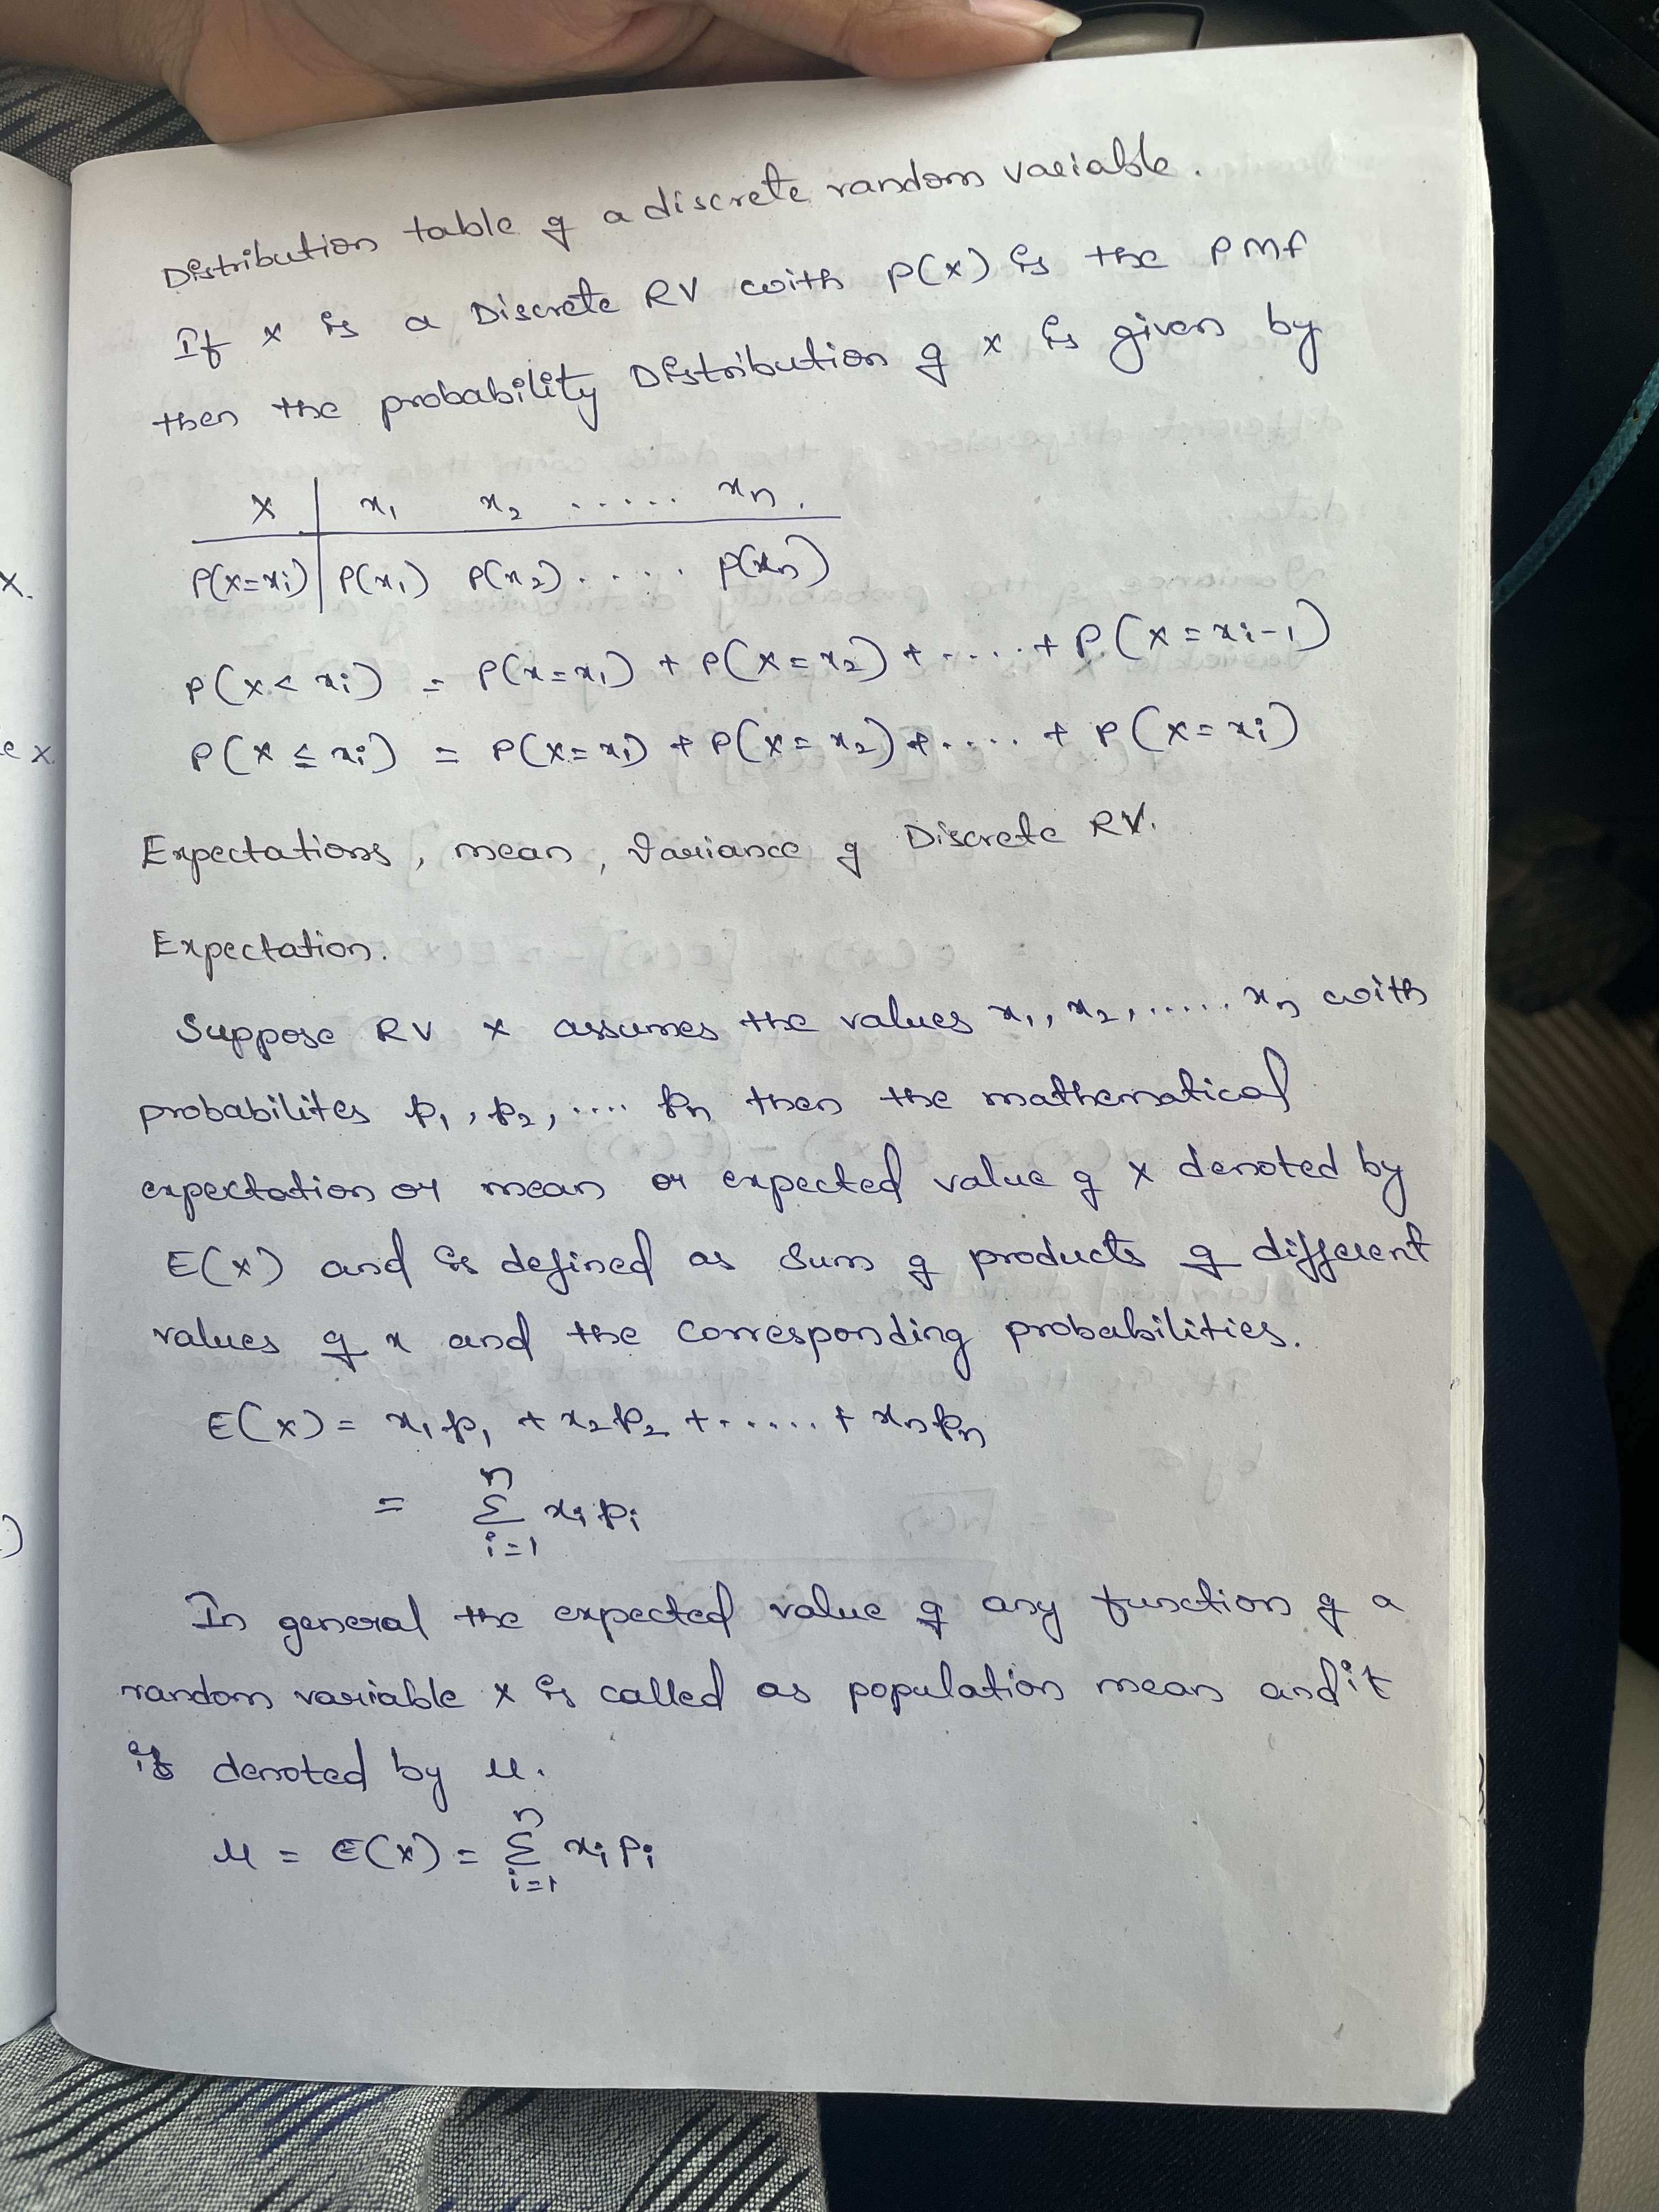 Distribution table of a discrete random variable.
If x is a Discrete RV with P(x) is the PMF
then the probability Distribution of x is given by
X | x₁ x₂ ..... xₙ.
P(x=xi) | P(x₁) P(x₂) ..... p(xₙ)
P(x < xi) = P(x=x₁) + P(x=x₂) + ..... + P(x=xi-1)
P(x ≤ xi) = P(x=x₁) + P(x=x₂) + ..... + P(x=xi)
Expectations, mean, Variance of Discrete RV.
Expectation.
Suppose RV x assumes the values x₁, x₂, ..... xₙ with
probabilites p₁, p₂, .... pₙ then the mathematical
expectation or mean or expected value of x denoted by
E(x) and is defined as sum of products of different
values of x and the corresponding probabilities.
E(x) = x₁p₁ + x₂p₂ + ...... + xₙpₙ
n
= Σ xi pi
i=1
In general the expected value of any function of a
random variable x is called as population mean and it
is denoted by μ.
n
μ = E(x) = Σ xi pi
i=1
x.
e x
)